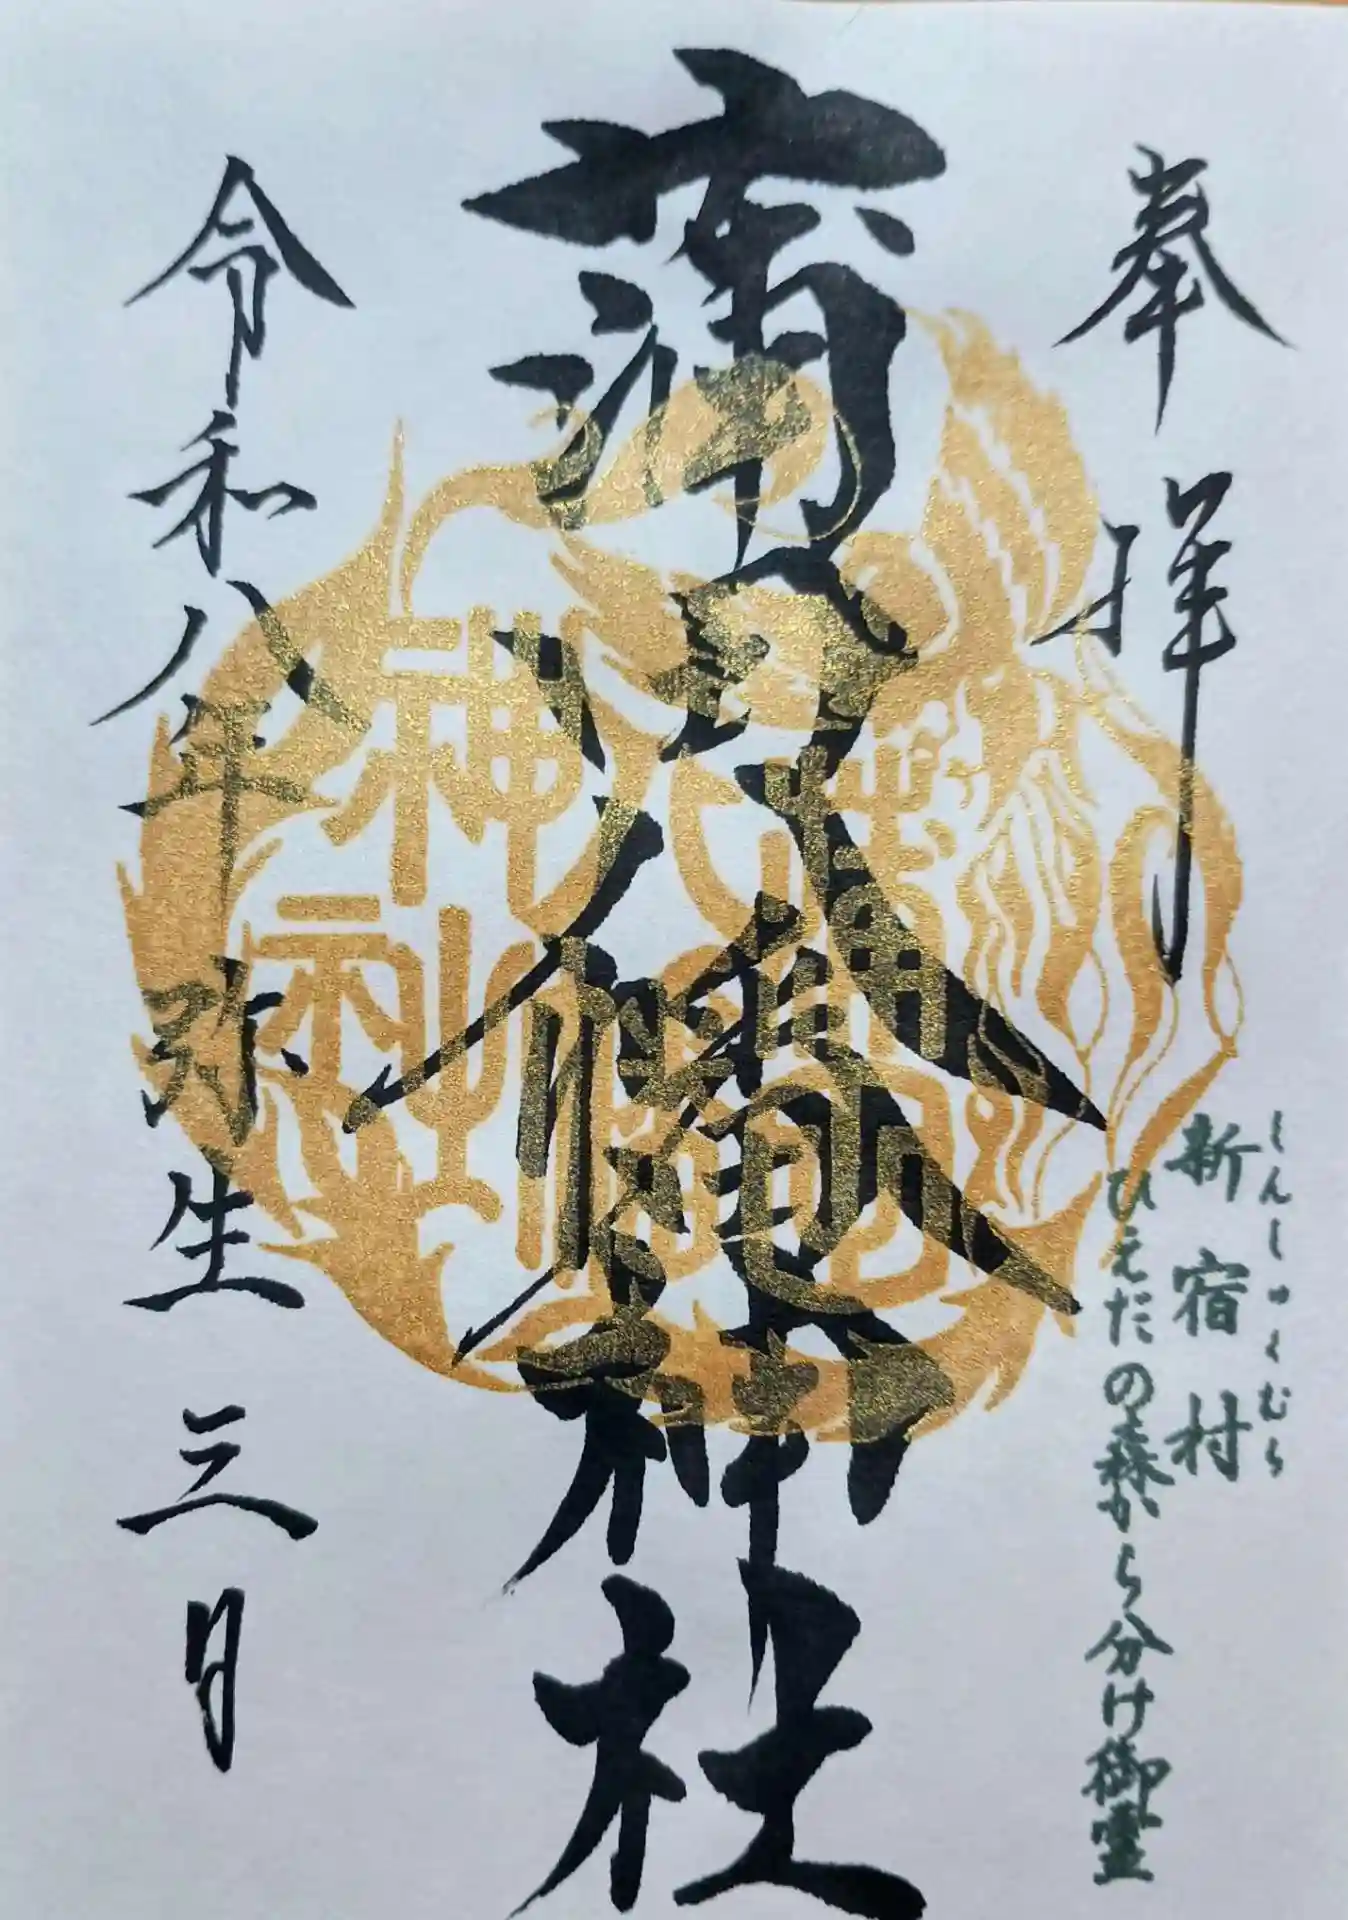 奉拝
しんしゅくむら
新宿村
ひえだの森から分け御霊
蒲田八幡神社
蒲田
八幡
神社
令和八年弥生三月